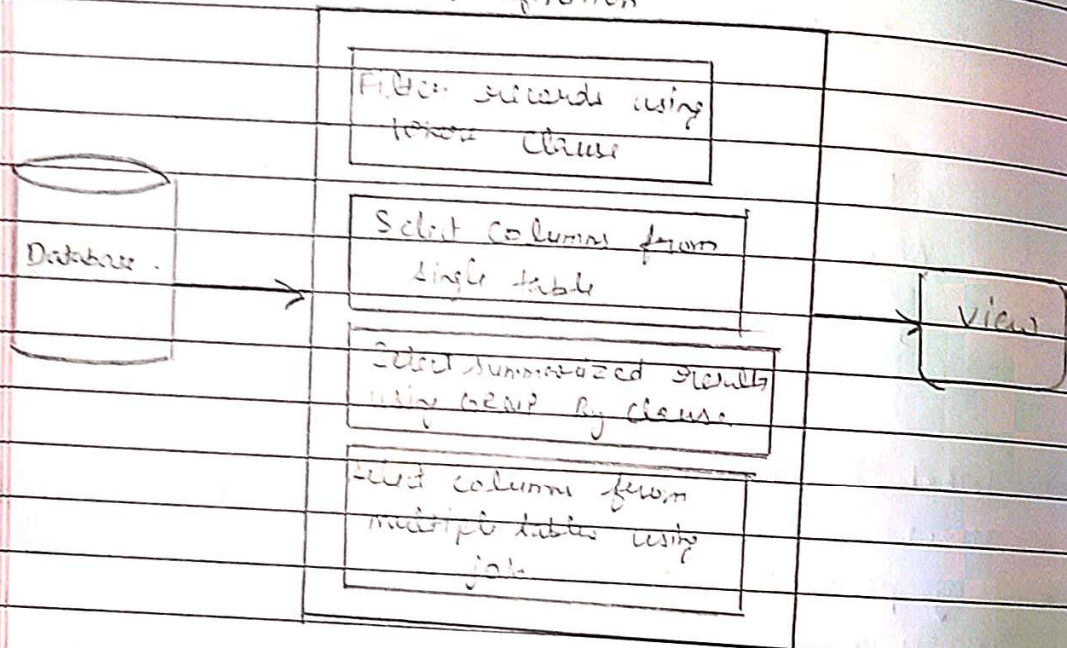 Filter records using
where Clause
Database.
Select columns from
single table
view
Select summarized results
using GROUP By clause
Select columns from
multiple tables using